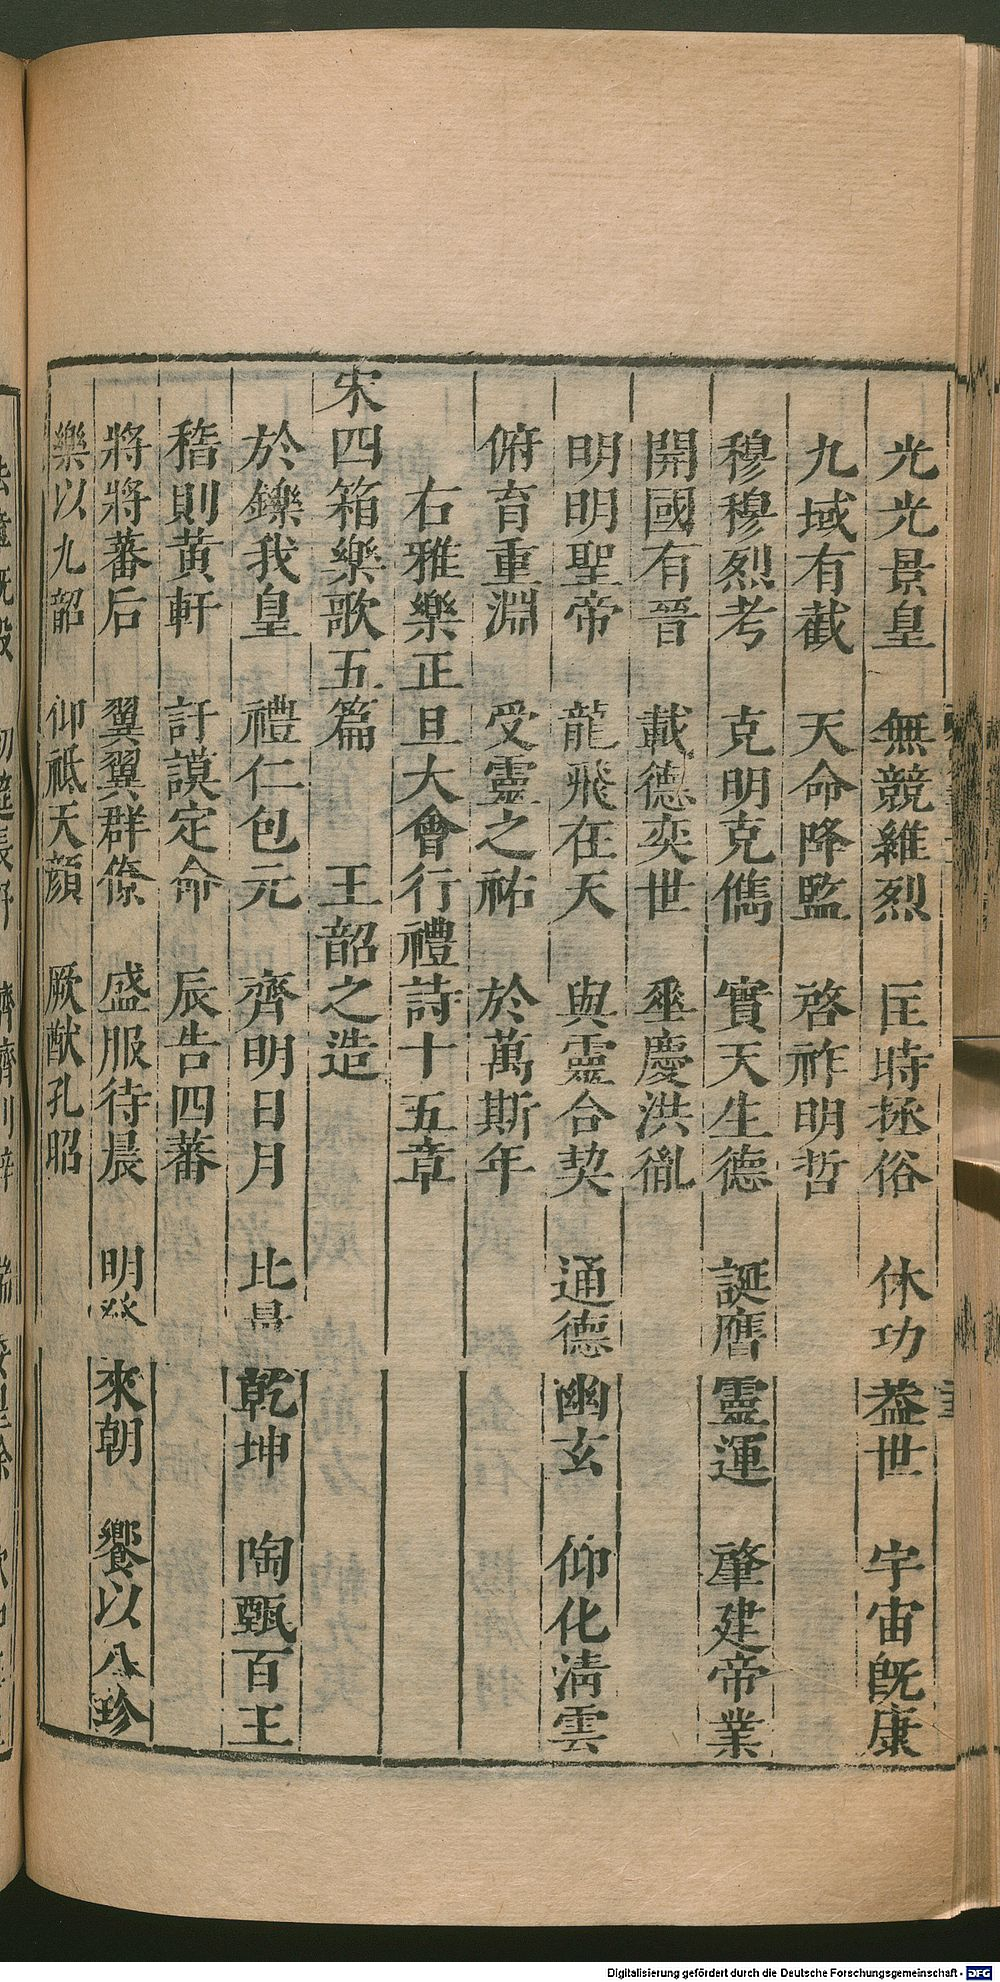 光光景皇　無競維烈　匡時拯俗　休功蓋世　宇宙旣康
九域有截　天命降監　啓祚明哲
穆穆烈考　克明克儁　實天生德　誕膺靈運　肇建帝業
開國有晉　載德奕世　垂慶洪胤
明明聖帝　龍飛在天　與靈合契　通德幽玄　仰化淸雲
俯育重淵　受靈之祐　於萬斯年
右雅樂正旦大會行禮詩十五章
宋四箱樂歌五篇　王韶之造
於鑠我皇　禮仁包元　齊明日月　比景乾坤　陶甄百王
稽則黃軒　訏謨定命　辰告四蕃
將將蕃后　翼翼群僚　盛服待晨　明發來朝　饗以八珍
樂以九韶　仰祗天顏　厥猷孔昭
Digitalisierung gefördert durch die Deutsche Forschungsgemeinschaft - DFG